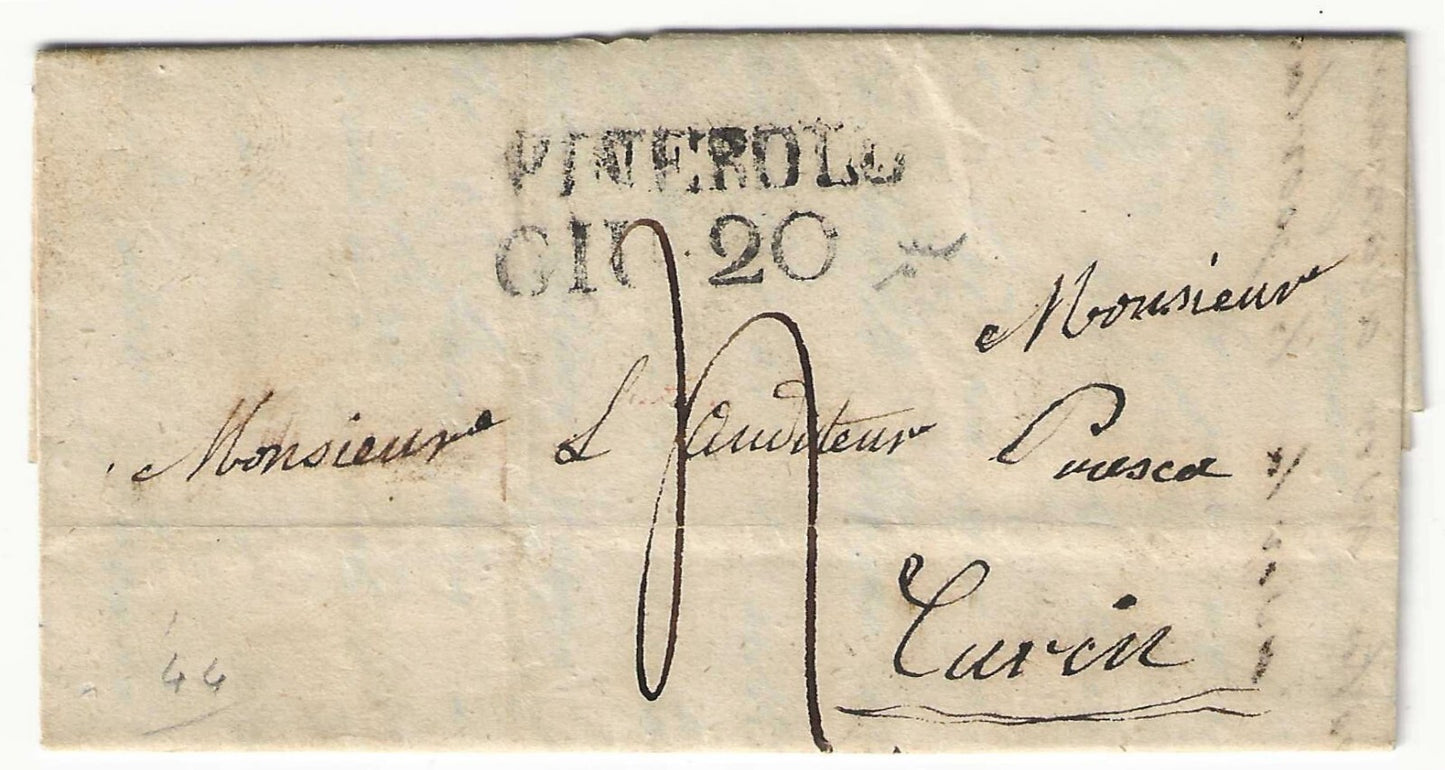 PINEROLO
GIU 20
Monsieur
Monsieur L'auditeur
Turin
44